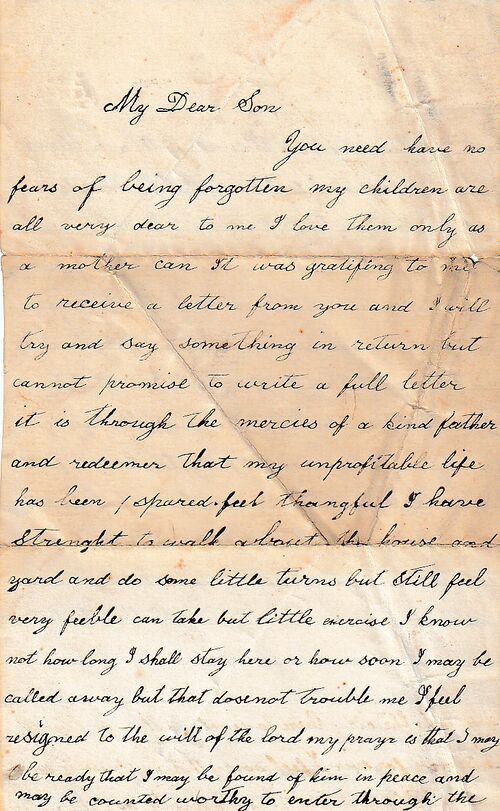 My Dear Son
You need have no
fears of being forgotten my children are
all very dear to me I love them only as
a mother can It was gratifing to me
to receive a letter from you and I will
try and say something in return but
cannot promise to write a full letter
it is through the mercies of a kind father
and redeemer that my unprofitable life
has been spared. feel thangful I have
strenght to walk about the house and
yard and do some little turns but still feel
very feeble can take but little exercise I know
not how long I shall stay here or how soon I may be
called away but that dosenot trouble me I feel
resigned to the will of the lord my prayr is that I may
be ready that I may be found of him in peace and
may be counted worthy to enter through the